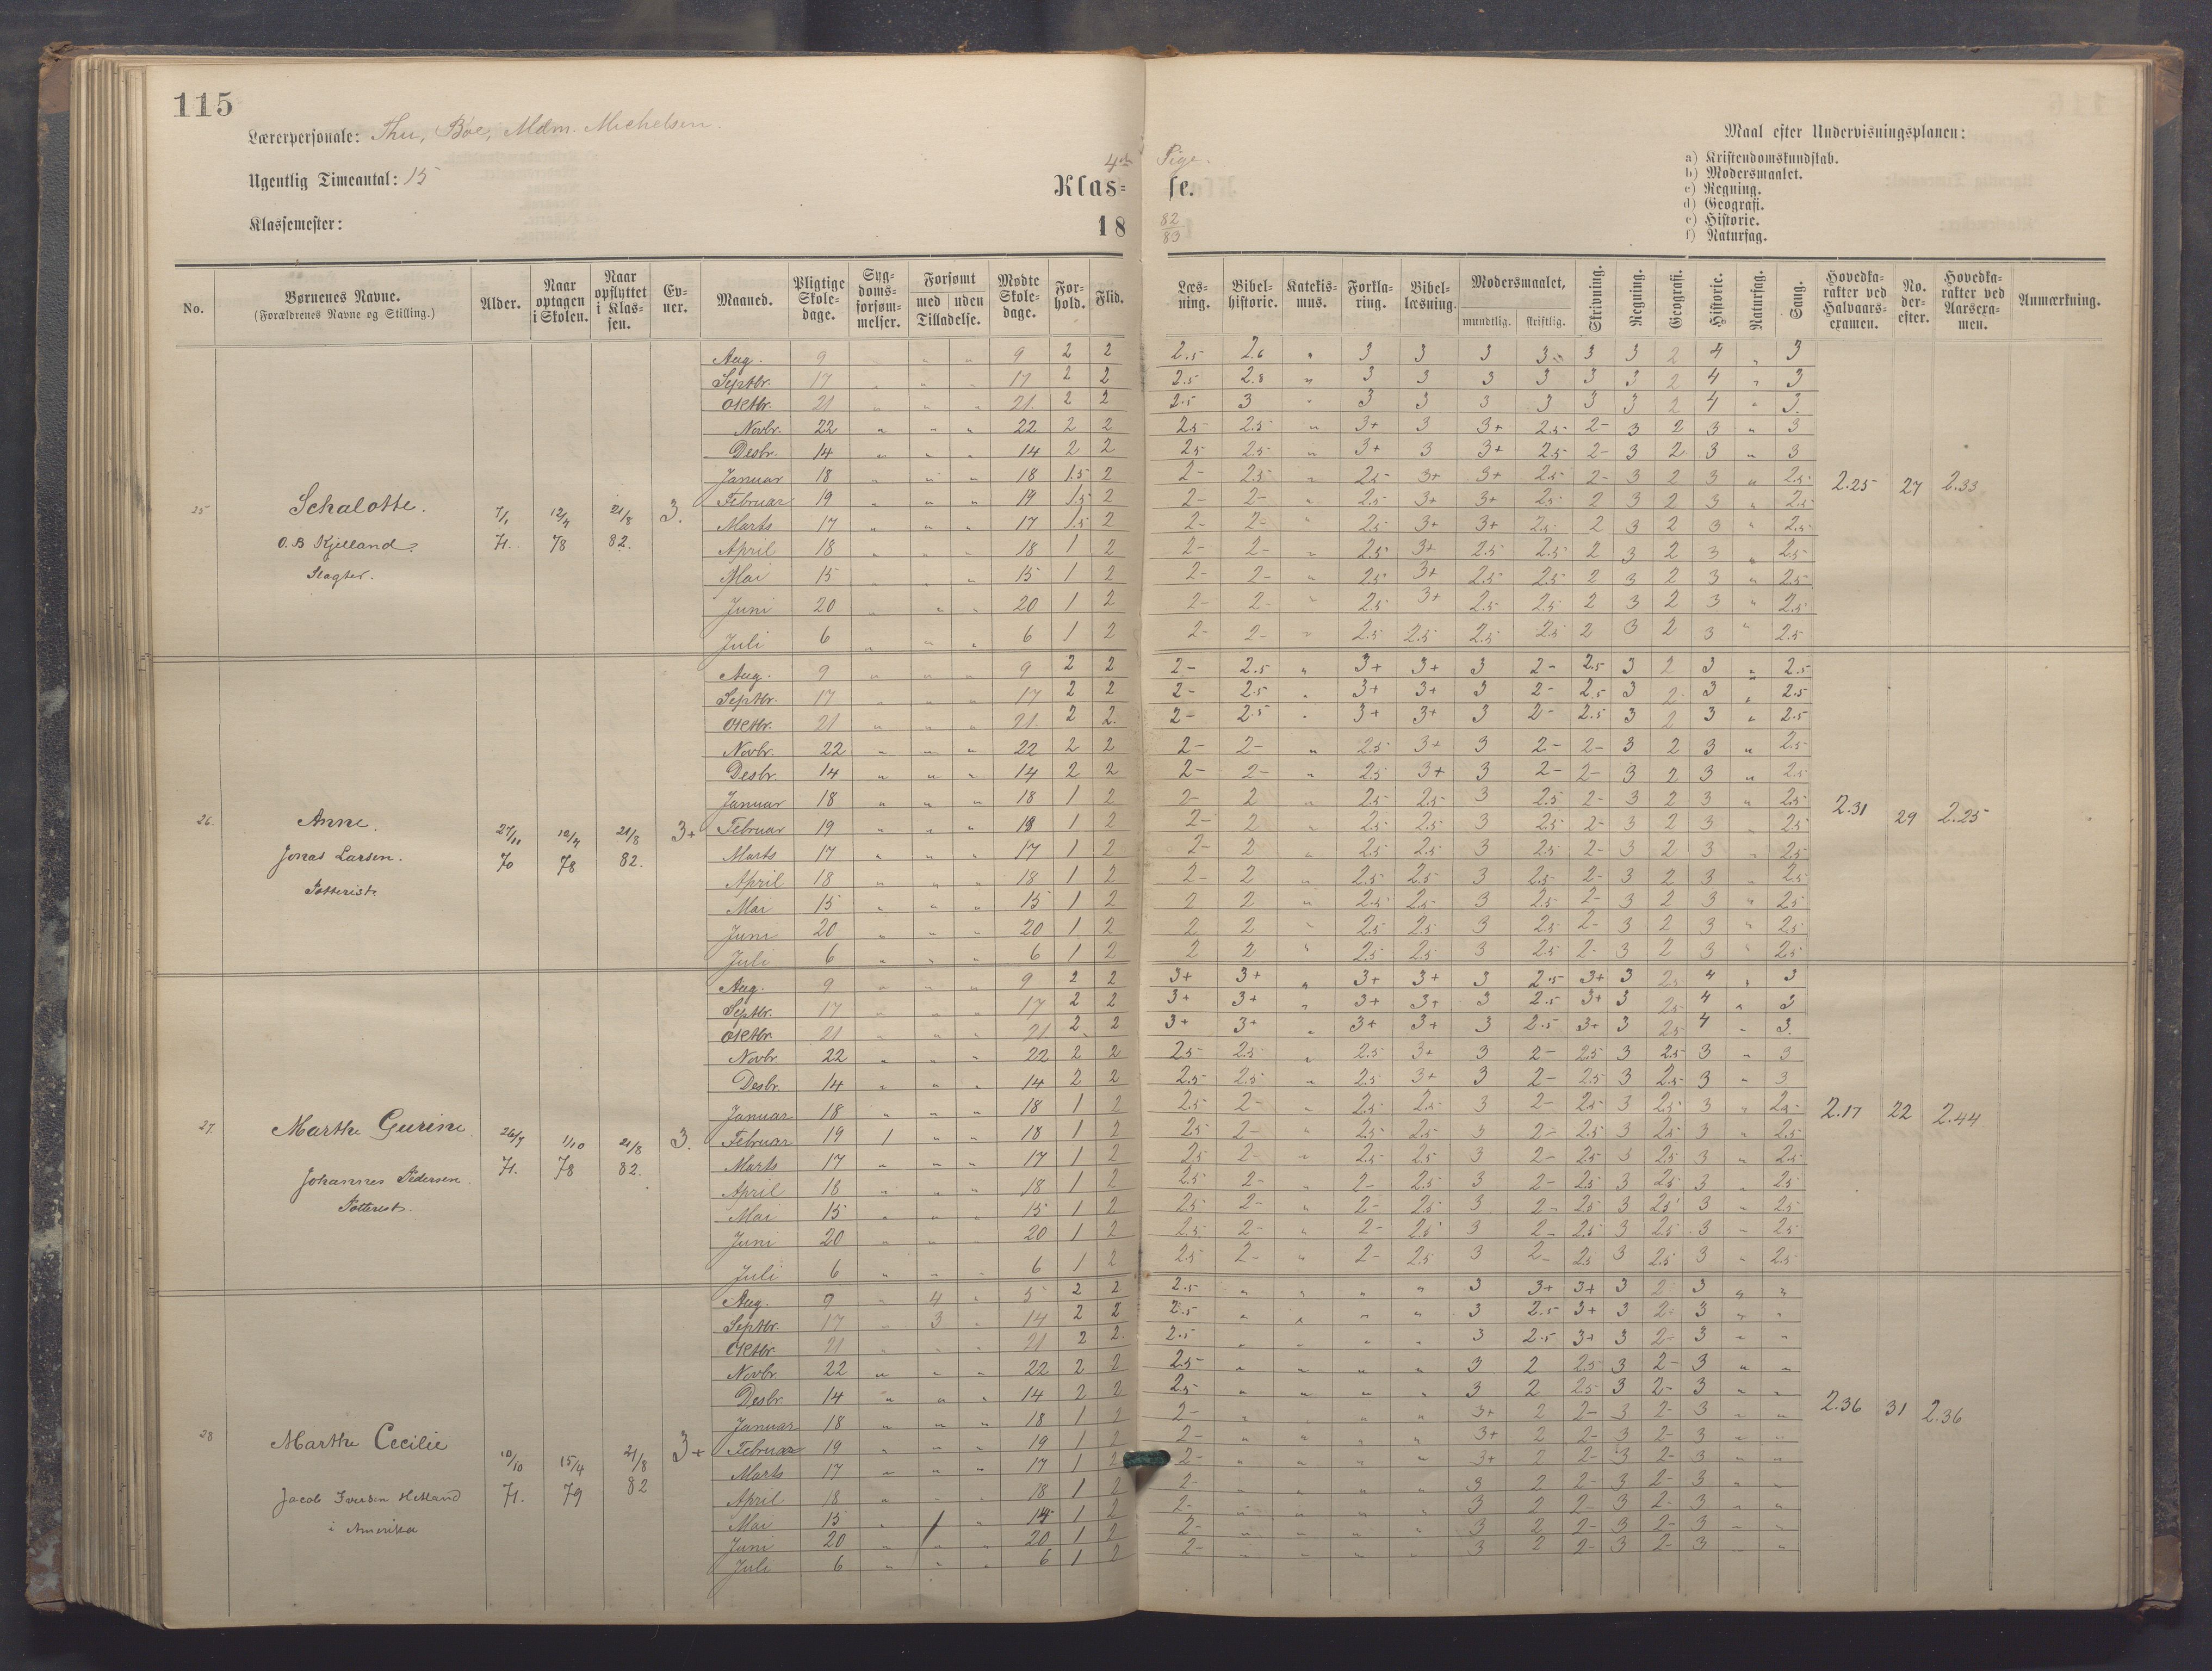 115
Lærerpersonale: Thu, Bøe, Mdm. Michelsen.
Ugentlig Timeantal: 15
Klassemester:
4de Pige-
Klas= se.
18 82/83
Maal efter Undervisningsplanen:
a) Kristendomskundskab.
b) Modersmaalet.
c) Regning.
d) Geografi.
e) Historie.
f) Naturfag.
No. Børnenes Navne. (Forældrenes Navne og Stilling.) Alder. Naar optagen i Skolen. Naar opflyttet i Klassen. Evner. Maaned. Pligtige Skoledage. Sygdomsforsømmelser. Forsømt med uden Tilladelse. Mødte Skoledage. Forhold. Flid. Læsning. Bibelhistorie. Katekismus. Forklaring. Bibellæsning. Modersmaalet, mundtlig. skriftlig. Skrivning. Regning. Geografi. Historie. Naturfag. Sang. Hovedkarakter ved Halvaarsexamen. No. derefter. Hovedkarakter ved Aarsexamen. Anmærkning.
25 Schalotte. O. B Kjelland. Slagter. 7/1 71. 12/4 78 21/8 82. 3. 2.25 27 2.33
Aug. 9 " " " 9 2 2 2.5 2.6 " 3 3 3 3- 3 3 2 4 " 3
Septbr. 17 " " " 17 2 2 2.5 2.8 " 3 3 3 3 3 3 2 4 " 3
Oktbr. 21 " " " 21. 2 2 2.5 3 " 3 3 3 3 3 3 2 4 " 3.
Novbr. 22 " " " 22 2 2 2.5 2.5 " 3+ 3 3+ 2.5 2- 3 2 3 " 3
Desbr. 14 " " " 14 2 2 2.5 2.5 " 3+ 3 3+ 2.5 2- 3 2 3 " 3
Januar 18 " " " 18 1.5 2 2- 2.5 " 2.5 3+ 3+ 2.5 2- 3 2 3 " 2.5
Februar 19 " " " 19 1.5 2 2- 2- " 2.5 3+ 3+ 2.5 2 3 2 3 " 2.5
Marts 17 " " " 17 1.5 2 2- 2- " 2.5 3+ 3+ 2.5 2 3 2 3 " 2.5
April 18 " " " 18 1 2 2- 2- " 2.5 3+ 2.5 2.5 2 3 2 3 " 2.5
Mai 15 " " " 15 1 2 2- 2- " 2.5 3+ 2.5 2.5 2 3 2 3 " 2.5
Juni 20 " " " 20 1 2 2- 2- " 2.5 3+ 2.5 2.5 2 3 2 3 " 2.5
Juli 6 " " " 6 1 2 2- 2- " 2.5 2.5 2.5 2.5 2 3 2 3 " 2.5
26. Anne. Jonas Larsen. Potterist. 27/11 70 12/4 78 21/8 82. 3+ 2.31 29 2.25
Aug. 9 " " " 9 2 2 2- 2.5 " 3+ 3+ 3 2- 2.5 3 2 3 " 2.5
Septbr. 17 " " " 17 2 2 2- 2.5 " 3+ 3+ 3 2- 2.5 3 2- 3 " 2.5
Oktbr. 21 " " " 21. 2 2. 2- 2.5 " 3+ 3+ 3 2- 2.5 3 2 3 " 2.5
Novbr. 22 " " " 22 2 2 2- 2- " 2.5 3+ 3 2- 2- 3 2 3 " 2.5
Desbr. 14 " " " 14 2 2 2- 2- " 2.5 3+ 3 2- 2- 3 2 3 " 2.5
Januar 18 " " " 18 1 2 2- 2 " 2.5 2.5 3 2.5 2- 3 2 3 " 2.5
Februar 19 " " " 19 1 2 2- 2 " 2.5 2.5 3 2.5 2- 3 2 3 " 2.5
Marts 17 " " " 17 1 2 2- 2 " 2.5 2.5 3 2.5 2- 3 2 3 " 2.5
April 18 " " " 18 1 2 2- 2 " 2.5 2.5 3 2.5 2- 3 2 3 " 2.5
Mai 15 " " " 15 1 2 2 2 " 2.5 2.5 3 2.5 2- 3 2 3 " 2.5
Juni 20 " " " 20 1 2 2 2 " 2.5 2.5 3 2.5 2- 3 2 3 " 2.5
Juli 6 " " " 6 1 2 2 2 " 2.5 2.5 3 2.5 2- 3 2 3 " 2.5
27. Marthe Gurine Johannes Pedersen. Potterist. 26/7 71. 1/10 78 21/8 82. 3. 2.17 22 2.44
Aug. 9 " " " 9 2 2 3+ 3+ " 3+ 3+ 3 2.5 3+ 3 2.5 4 " 3
Septbr. 17 " " " 17 2 2 3+ 3+ " 3+ 3+ 3 2.5 3+ 3 2.5 4 " 3
Oktbr. 21 " " " 21 2 2 3+ 3+ " 3+ 3+ 3 2.5 3+ 3 2.5 4 " 3.
Novbr 22 " " " 22 2 2 2.5 2.5 " 2.5 3+ 3 2- 2.5 3 2.5 3 " 3
Desbr. 14 " " " 14 2 2 2.5 2.5 " 2.5 3+ 3 2- 2.5 3 2.5 3 " 3
Januar 18 " " " 18 1 2 2.5 2- " 2.5 2.5 3 2- 2.5 3 2.5 3 " 2.5
Februar 19 1 " " 18 1 2 2.5 2- " 2.5 2.5 3 2- 2.5 3 2.5 3 " 2.5
Marts 17 " " " 17 1 2 2.5 2- " 2.5 2.5 3 2- 2.5 3 2.5 3 " 2.5
April 18 " " " 18 1 2 2.5 2- " 2- 2.5 3 2- 2.5 3 2.5 3 " 2.5
Mai 15 " " " 15 1 2 2.5 2- " 2- 2.5 3 2- 2.5 3 2.5 3 " 2.5
Juni 20 " " " 20 1 2 2.5 2- " 2- 2.5 3 2- 2.5 3 2.5 3 " 2.5
Juli 6 " " " 6 1 2 2.5 2- " 2- 2.5 3 2- 2.5 3 2.5 3 " 2.5
28 Marthe Cecilie Jacob Iversen Hetland i Amerika 10/10 71. 15/4 79 21/8 82 3+ 2.36 31 2.36
Aug. 9 " 4 " 5 2 2 2.5 " " " " 3 3+ 3+ 3 2 3 " "
Septbr. 17 " 3 " 14 2 2 2.5 " " " " 3 2.5 3+ 3 2- 3 " "
Oktbr. 21 " " " 21 2 2. 2.5 " " " " 3 2.5 3+ 3 2- 3 " "
Novbr. 22 " " " 22 2 2 2.5 " " " " 3 2 2.5 3 2- 3 " "
Desbr. 14 " " " 14 2 2 2.5 " " " " 3 2 2.5 3 2- 3 " "
Januar 18 " " " 18 1 2 2- " " " " 3+ 2 2- 3 2- 3 " "
Februar 19 " " " 19 1 2 2- " " " " 3+ 2 2- 3 2- 3 " "
Marts 17 " " " 17 1 2 2- " " " " 3+ 2 2- 3 2- 3 " "
April 18 " " " 18 1 2 2- " " " " 3 2 2- 3 2- 3 " "
Mai 15 " 1 " 14 1 2 2- " " " " 3 2 2- 3 2- 3 " "
Juni 20 " " " 20 1 2 2- " " " " 3 2 2- 3 2- 3 " "
Juli 6 " " " 6 1 2 2- " " " " 3 2 2- 3 2- 3 " "